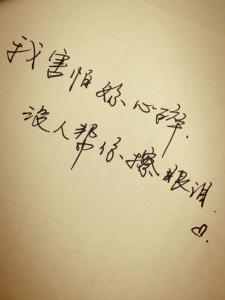 我害怕妳心碎.
没人帮你擦眼泪.